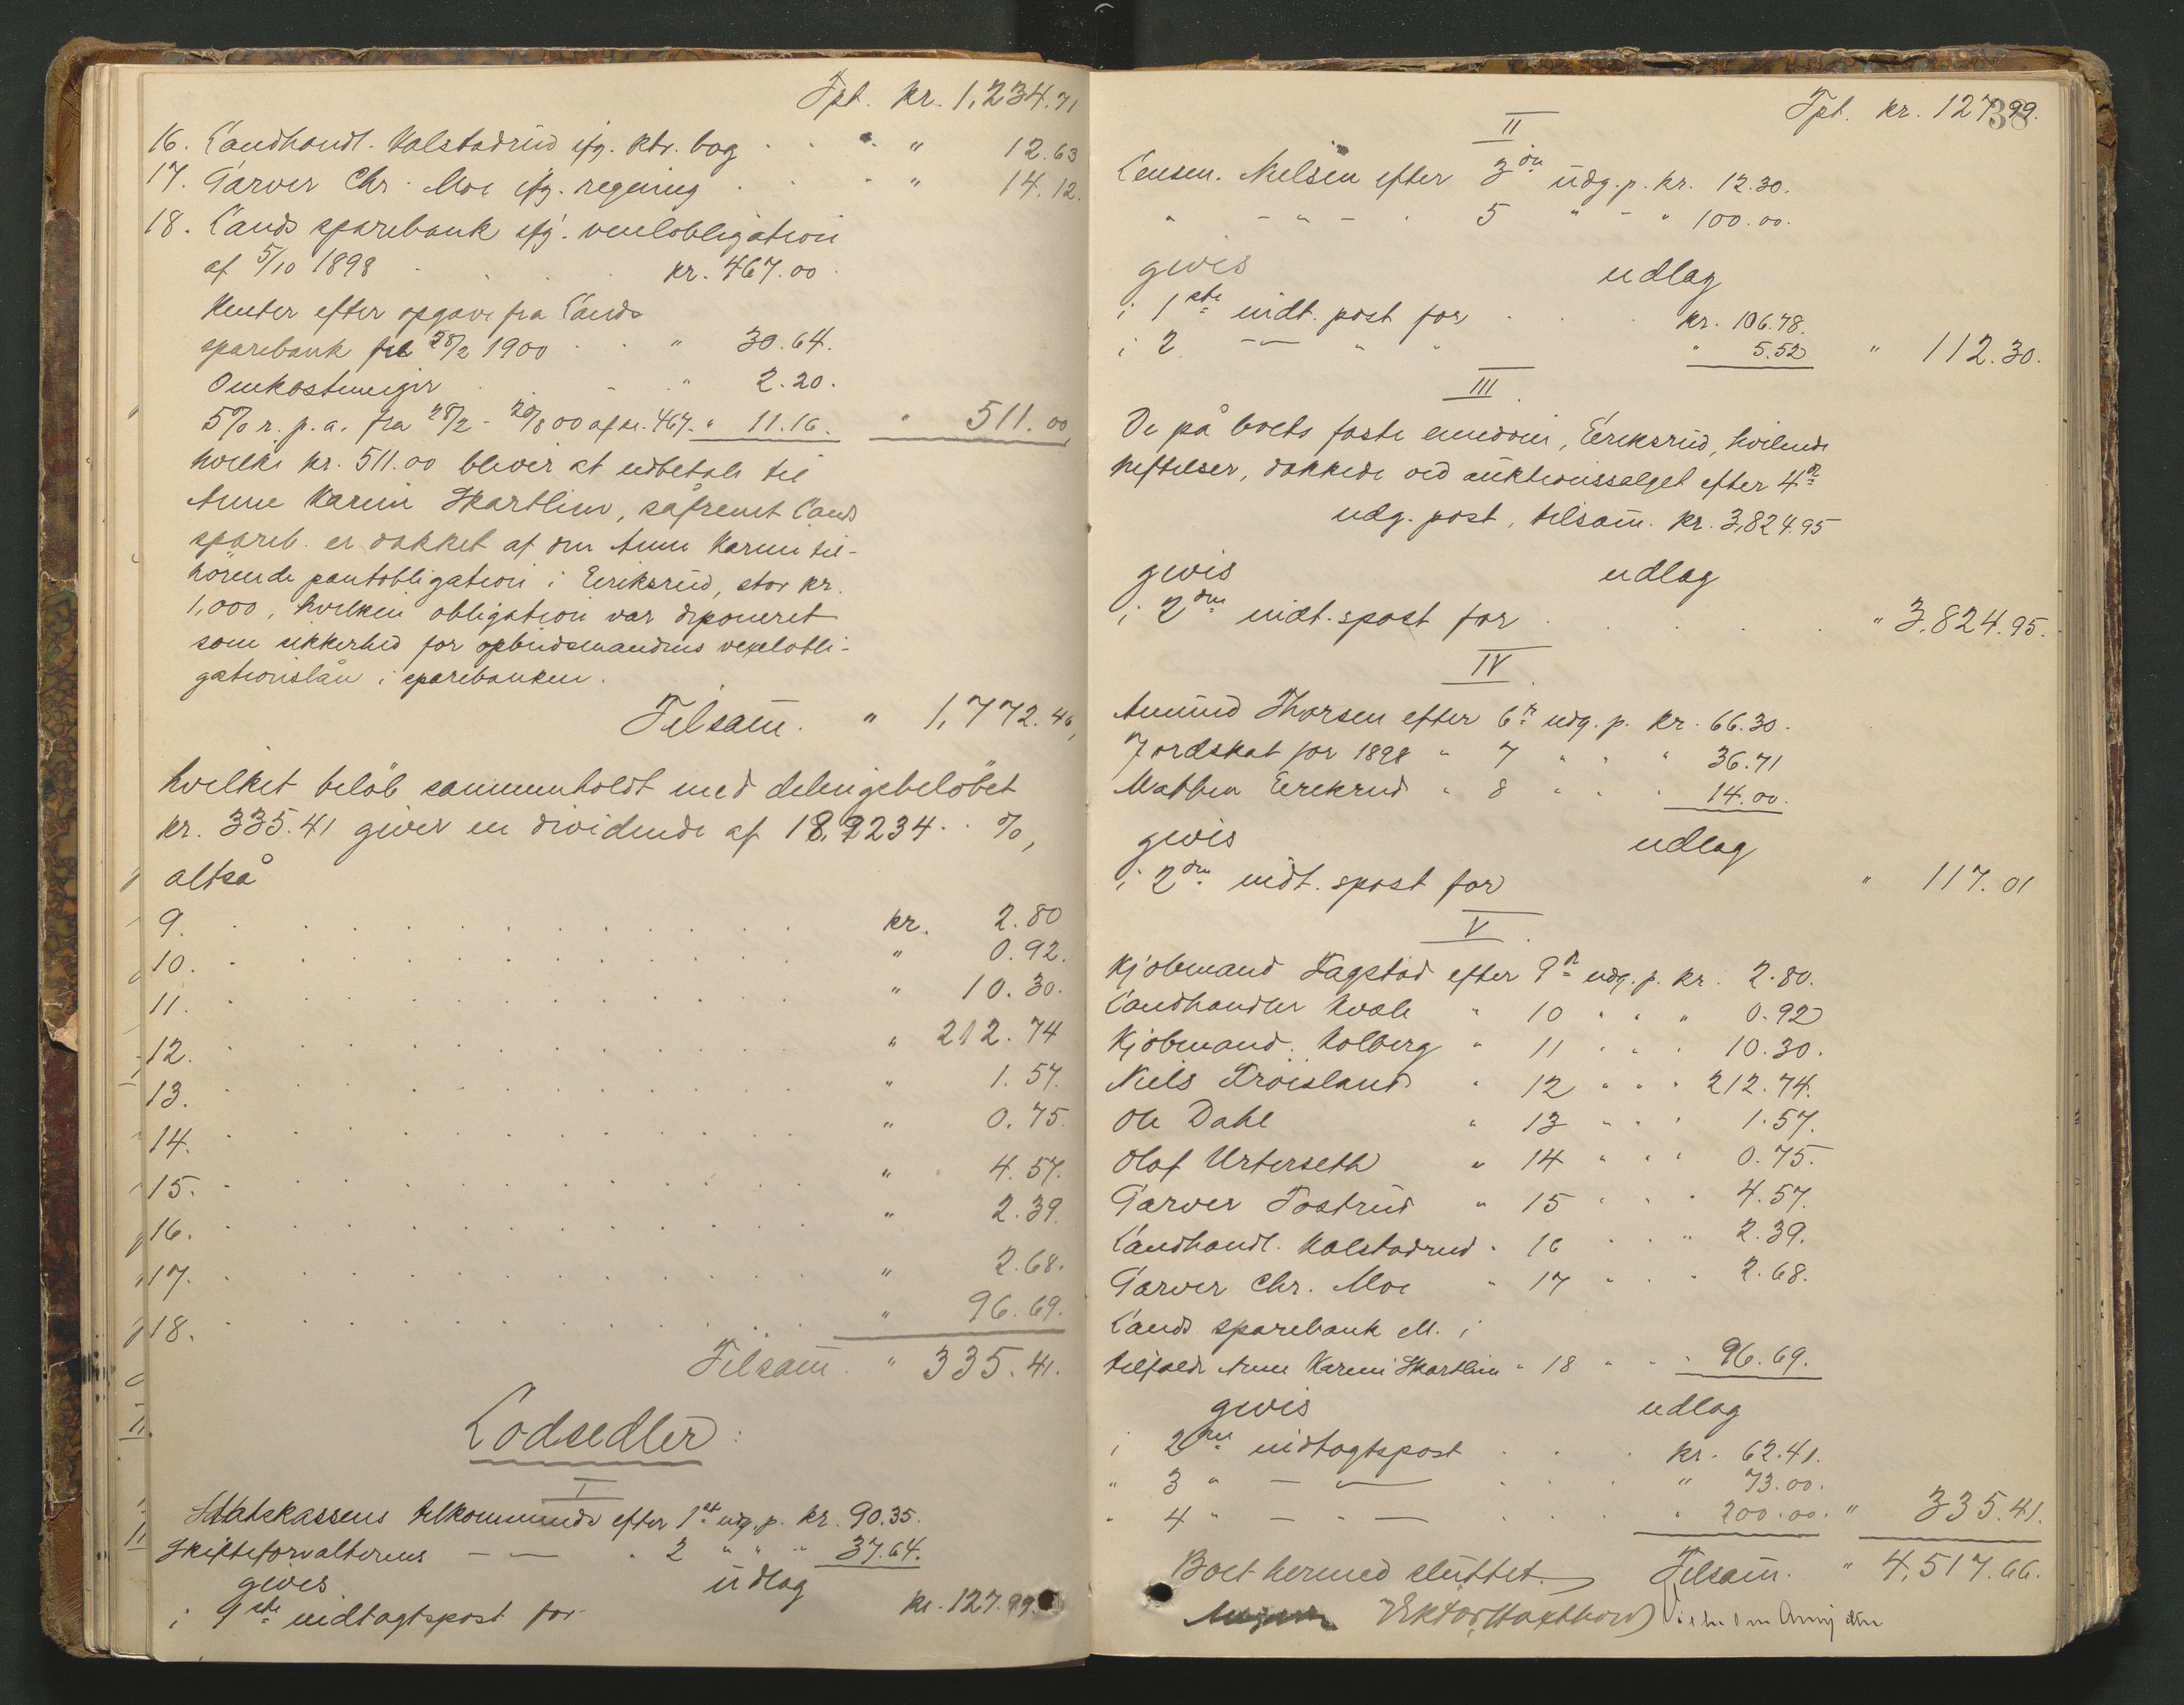 Tpt. kr. 1,234.71
16. Landhandl. Kolstadrud ifg. ktr. bog " 12.63
17. Garver Chr. Moe ifg. regning " 14.12.
18. Lands sparebank ifg. vexelobligation
af 5/10 1898 kr. 467.00.
Renter efter opgave fra Lands
sparebank til 28/2 1900 " 30.64.
Omkostninger " 2.20.
5% r. p. a. fra 28/2 - 20/8 00 af kr. 467. " 11.16. " 511.00,
hvilke kr. 511.00 bliver at udbetale til
Anne Karine Skartlien, såfremt Lands
spareb. er dækket af den Anne Karine til-
hørende pantobligation i Eeriksrud, stor kr.
1,000, hvilken obligation var deponeret
som sikkerhed for opbudsmandens vexelobli-
gationslån i sparebanken.
Tilsam. " 1,772.46,
hvilket beløb sammenholdt med delingsbeløbet
kr. 335.41 giver en dividende af 18,9234.. %,
altså
9. kr. 2.80
10. " 0.92.
11. " 10.30.
12. " 212.74
13. " 1.57.
14. " 0.75.
15. " 4.57.
16. " 2.39.
17. " 2.68.
18. " 96.69.
Tilsam. " 335.41.
Lodsedler:
I
Statskassens tilkommende efter 1ste udg. p. kr. 90.35.
Skifteforvalterens — — " 2 " " " 37.64.
gives udlag
i 1ste indtægtspost for kr. 127.99.
38
Tpt. kr. 127.99.
II
Lensm. Nielsen efter 3die udg. p. kr. 12.30.
" - " - " 5 " - " 100.00.
gives udlag
i 1ste indt. post for kr. 106.78.
i 2 — " " " 5.52 " 112.30.
III
De på boets faste eiendom, Eeriksrud, hvilende
heftelser, dækkede ved auktionssalget efter 4de
udg. post, tilsam. kr. 3,824.95
gives udlag
i 2den indt.spost for " 3,824.95.
IV
Amund Thorsen efter 6te udg. p. kr. 66.30.
Jordskat for 1898 " 7 " " " 36.71
Mathea Eerikrud " 8 " " " 14.00.
gives udlag
i 2den indt.spost for " 117.01
V
Kjøbmand Fagstad efter 9de udg. p. kr. 2.80.
Landhandler Kvale " 10 " " " 0.92
Kjøbmand Kolberg " 11 " " " 10.30.
Niels Frøisland " 12 " " " 212.74.
Ole Dahl " 13 " " " 1.57.
Olaf Urterseth " 14 " " " 0.75.
Garver Tostrud " 15 " " " 4.57.
Landhandl. Kolstadrud " 16 " " " 2.39.
Garver Chr. Moe " 17 " " " 2.68.
Lands sparebank ell. i
tilfælde Anne Karine Skartlien " 18 " " " 96.69.
gives udlag
i 2den indtægtspost kr. 62.41.
" 3 " — " — " 73.00.
" 4 " — " — " 200.00. " 335.41.
Boet hermed sluttet. Tilsam. " 4,517.66.